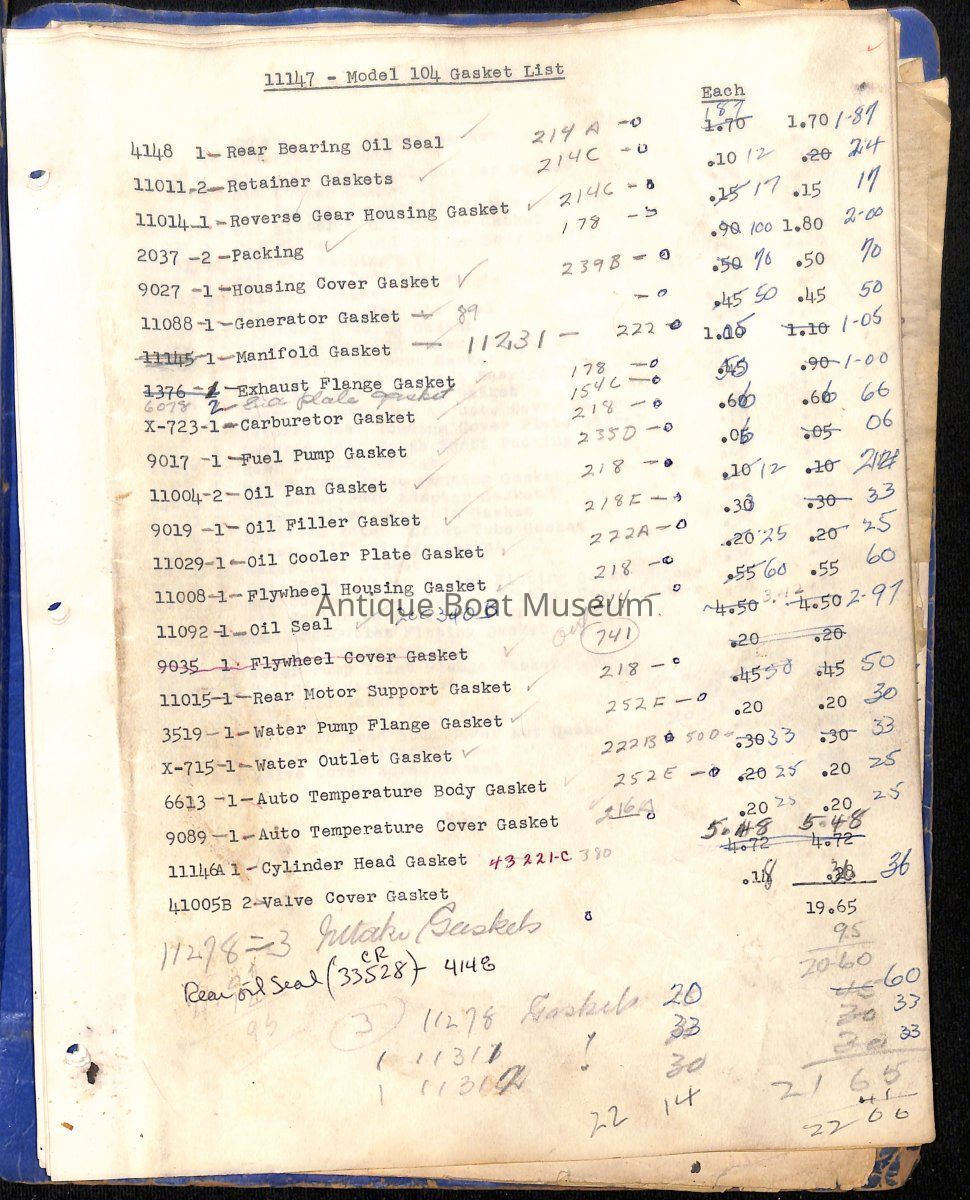 11147 - Model 104 Gasket List
Each
187
4148 1- Rear Bearing Oil Seal 214 A -o 1.70 1.70 1-87
11011-2- Retainer Gaskets 214C -o .10 12 .20 24
11014-1- Reverse Gear Housing Gasket 214C -o .15 17 .15 17
2037 -2 -Packing 178 -o .90 100 1.80 2-00
9027 -1- Housing Cover Gasket 239B -o .50 70 .50 70
11088-1- Generator Gasket - 89 -o .45 50 .45 50
11145 1- Manifold Gasket - 11231 - 222 -o 1.10 05 1.10 1-05
1376 -1- Exhaust Flange Gasket 178 -o .45 50 .90 1-00
6078 2 End plate gasket 154C -o
X-723-1- Carburetor Gasket 218 -o .60 6 .60 6 66
9017 -1- Fuel Pump Gasket 235D -o .05 6 .05 06
11004-2- Oil Pan Gasket 218 -o .10 12 .10 24
9019 -1- Oil Filler Gasket 218F -o .30 3 .30 33
11029-1- Oil Cooler Plate Gasket 222A -o .20 25 .20 25
11008-1- Flywheel Housing Gasket 218 -o .55 60 .55 60
11092-1- Oil Seal 4.50 4.50 2-97
Antique Boat Museum
9035 1- Flywheel Cover Gasket 741 .20 .20
11015-1- Rear Motor Support Gasket 218 -o .45 50 .45 50
3519 -1- Water Pump Flange Gasket 252F -o .20 .20 30
X-715-1- Water Outlet Gasket 222B 500- .30 33 .30 33
6613 -1- Auto Temperature Body Gasket 252E -o .20 25 .20 25
9089 -1- Auto Temperature Cover Gasket 216A .20 25 .20 25
5.48 5.48
11146A 1- Cylinder Head Gasket 43221-C 380 4.72 4.72
41005B 2-Valve Cover Gasket .14 8 .28 36 36
19.65
11278=3 Intake Gaskets 95
Rear oil Seal (CR 33528) - 4148 20-60
95
60
3 11278 Gaskets 20 30 33
1 11311 " 33 30 33
1 11312 " 30 21 65
41
22 14 22 06